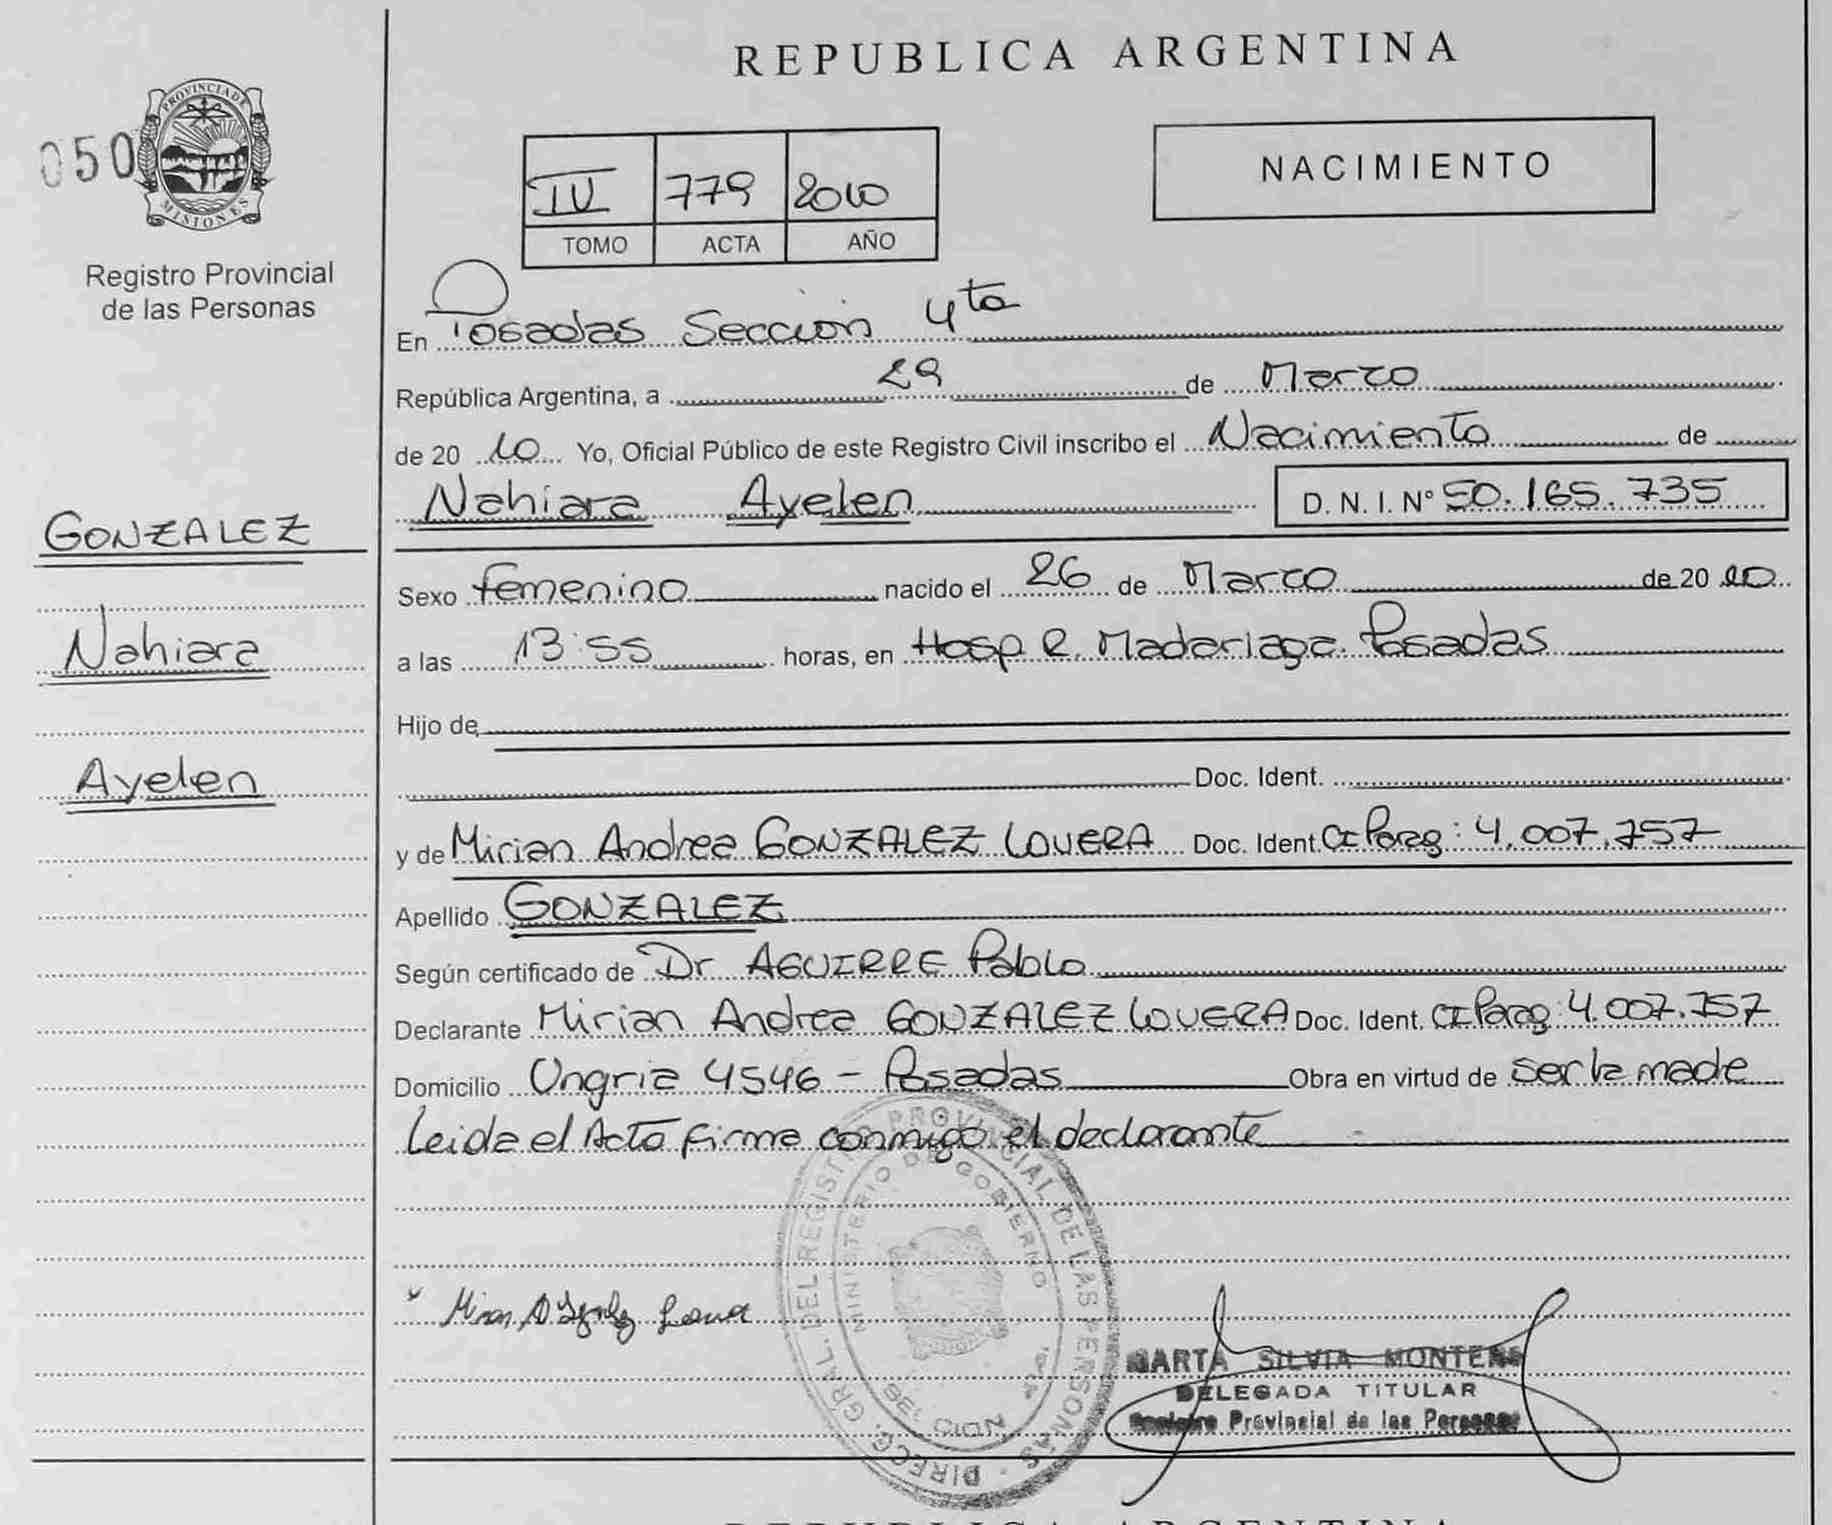 REPUBLICA ARGENTINA
050
PROVINCIA DE
MISIONES
Registro Provincial
de las Personas
IV 779 2010
TOMO ACTA AÑO
NACIMIENTO
En Posadas Sección 4ta
República Argentina, a 29 de Marzo
de 20 10 Yo, Oficial Público de este Registro Civil inscribo el Nacimiento de
Nahiara Ayelen D. N. I. Nº 50.165.735
GONZALEZ
Nahiara
Ayelen
Sexo femenino nacido el 26 de Marzo de 20 10
a las 13:55 horas, en Hosp R. Madariaga. Posadas
Hijo de
Doc. Ident.
y de Mirian Andrea GONZALEZ LOVERA Doc. Ident. CI Parag: 4.007.757
Apellido GONZALEZ
Según certificado de Dr AGUIRRE Pablo
Declarante Mirian Andrea GONZALEZ LOVERA Doc. Ident. CI Parag: 4.007.757
Domicilio Ungria 4546 - Posadas Obra en virtud de ser la made
Leida el Acta firma conmigo el declarante
DIRECC. GRAL. DEL REGISTRO PROVINCIAL DE LAS PERSONAS
MINISTERIO DE GOBIERNO
MARTA SILVIA MONTERO
DELEGADA TITULAR
Registro Provincial de las Personas
REPUBLICA ARGENTINA